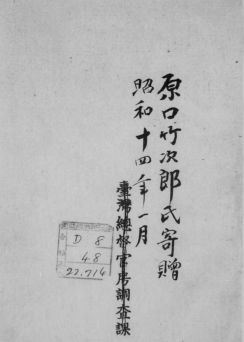 原口竹次郎氏寄贈
昭和十四年一月
臺灣總督官房調査課
D 8
48
22.714